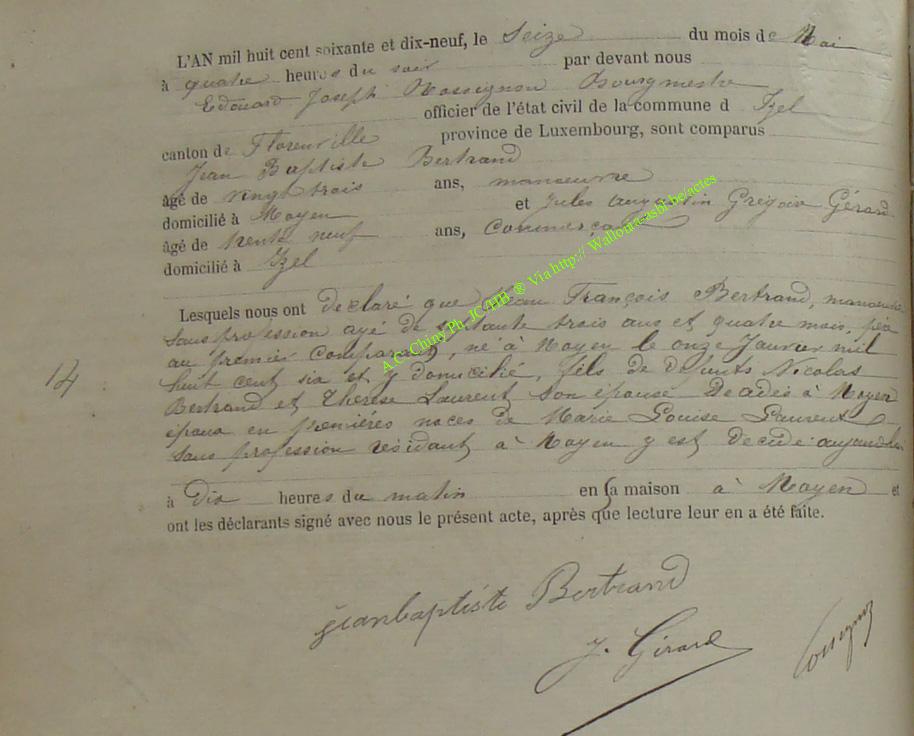 L'AN mil huit cent soixante et dix-neuf, le Seize du mois de Mai
à quatre heures du soir par devant nous
Edouard Joseph Rossignon Bourgmestre
officier de l'état civil de la commune d Izel
canton de Florenville province de Luxembourg, sont comparus
Jean Baptiste Bertrand
âgé de vingt trois ans, manoeuvre
domicilié à Moyen et Jules Augustin Grégoire Gérard
âgé de trente neuf ans, Commerçant
domicilié à Izel
Lesquels nous ont declaré que Jean François Bertrand, manoeuvre
sans profession agé de soixante trois ans et quatre mois, père
au premier Comparant, né à Moyen le onze Janvier mil
14
huit cent six et y domicilié, fils de défunts Nicolas
Bertrand et Thérèse Laurent son épouse Décédés à Moyen
époux en premières noces de Marie Louise Laurent
sans profession résidant à Moyen y est décédé aujourd'hui
à Dix heures du matin en sa maison à Moyen et
ont les déclarants signé avec nous le présent acte, après que lecture leur en a été faite.
jeanbaptiste Bertrand
J. Gérard
Rossignon
A.C. Chiny Ph. JC/HB ® Via http:// Wallonia-asbl.be/actes